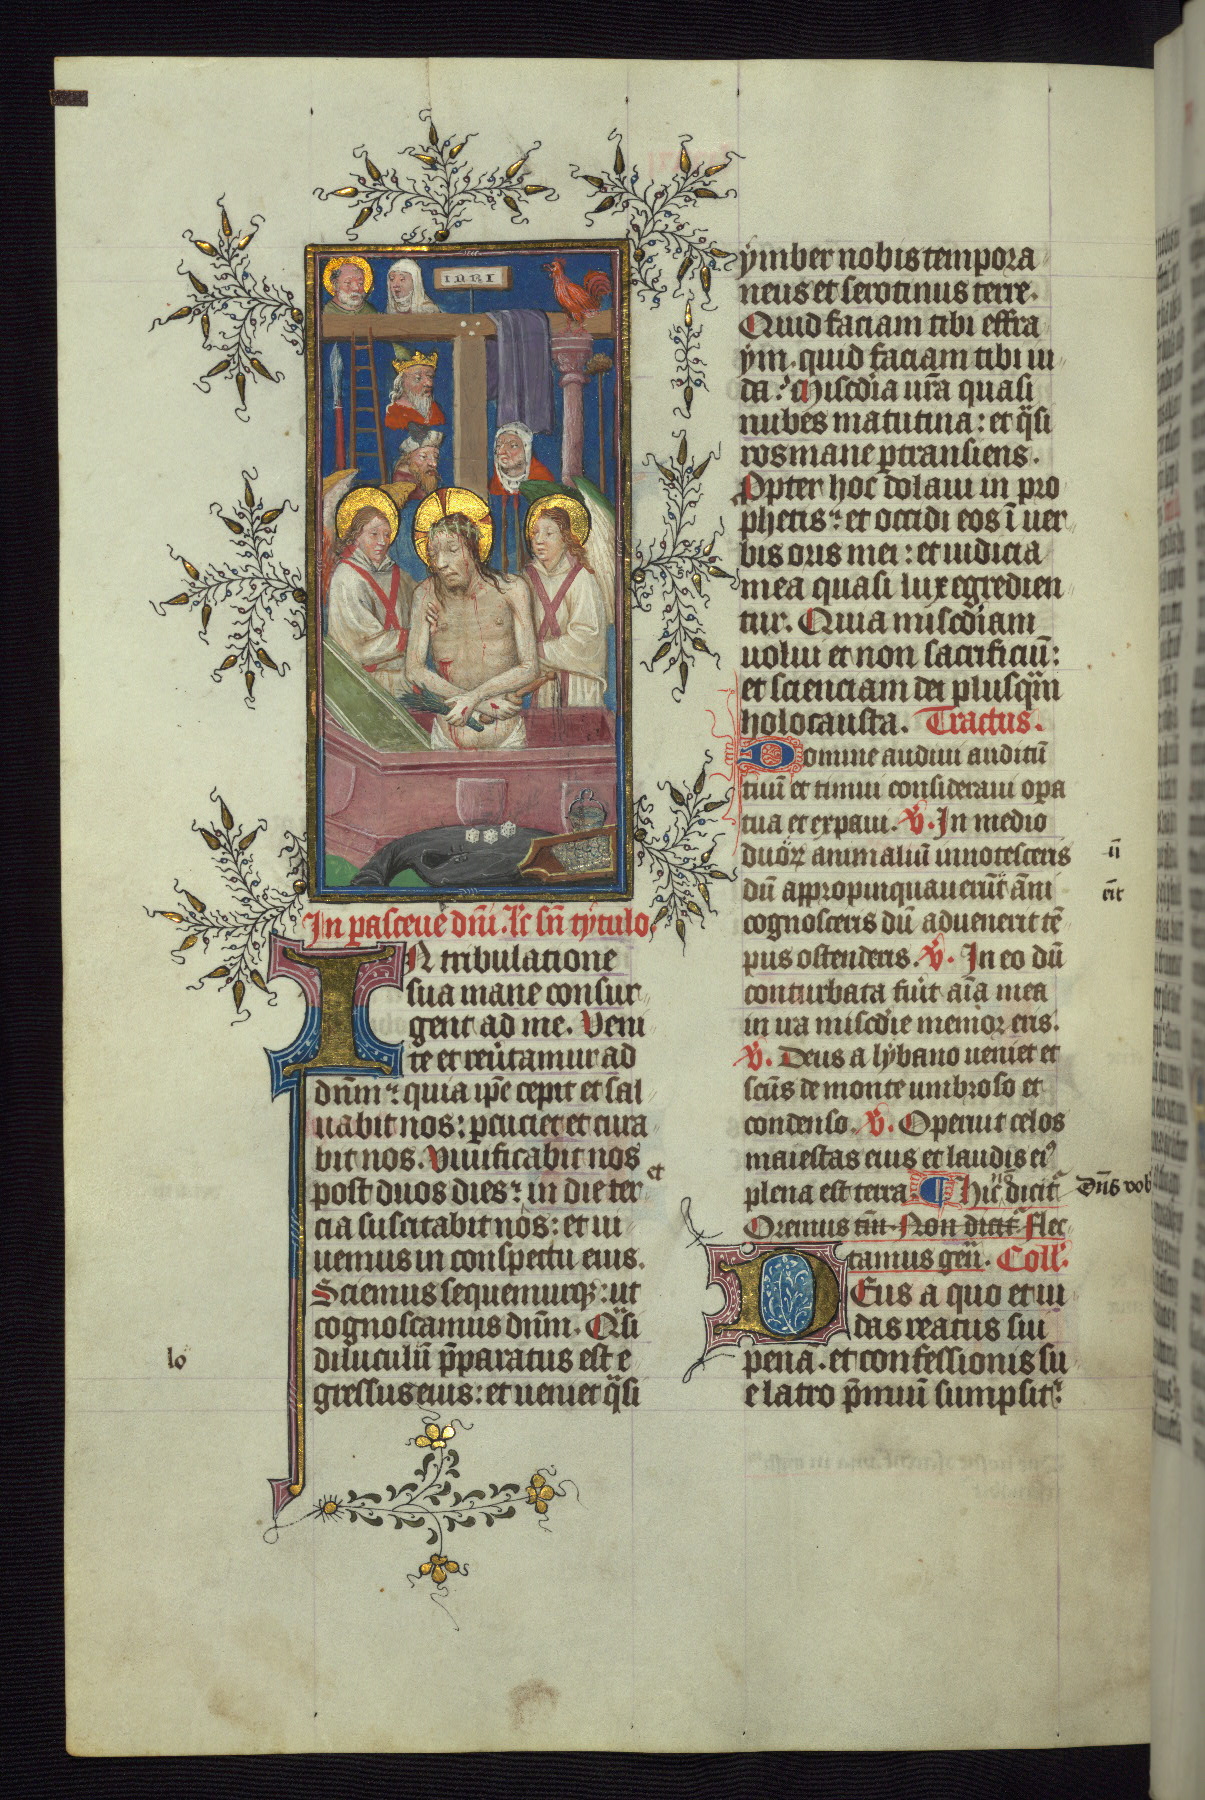 INRI
In pasceue dn̄i. Lc̄ sn̄ tytulo.
IN tribulatione
sua mane consur
gent ad me. Veni
te et reu̅tamur ad
dn̄m: quia ip̄e cepit et sal
uabit nos: ꝑcuciet et cura
bit nos. Viuificabit nos
post duos dies: et in die ter
cia suscitabit nos: et ui
uemus in conspectu eius.
Sciemus sequemurqꝫ: ut
cognoscamus dn̄m. Q̈si
diluculū p̄paratus est e
lo
gressus eius: et ueniet q̈si
ymber nobis tempora
neus et serotinus terre.
Quid faciam tibi effra
ym. quid faciam tibi iu
da? Misc̄dia ur̄a quasi
nubes matutina: et q̈si
ros mane ꝑtransiens.
Propter hoc dolaui in pro
phetis: et occidi eos ī uer
bis oris mei: et iudicia
mea quasi lux egredien
tur. Quia misc̄diam
uolui et non sacrificiū:
et scienciam dei plusq̈m
holocausta. Tractus.
Domine audiui auditū
tuū et timui consideraui oꝑa
tua et expaui. V. In medio
duoꝝ animaliū innotesceris
dū appropinquauerūt āni
cognosceris dū aduenerit tē
pus ostenderis. V. In eo dū
conturbata fu̅it aīa mea
in ira misc̄die memor eris.
V. Deus a lybano ueniet et
sc̄us de monte umbroso et
condenso. V. Operuit celos
maiestas eius et laudis eiꝰ
plena est terra. Hic dicit̄ Dn̄s vob
Oremus tm̄. Non dicit̄ flec
tamus geū. Coll̄.
DEus a quo et iu
das reatus sui
pena. et confessionis su
e latro p̄miū sumpsit: